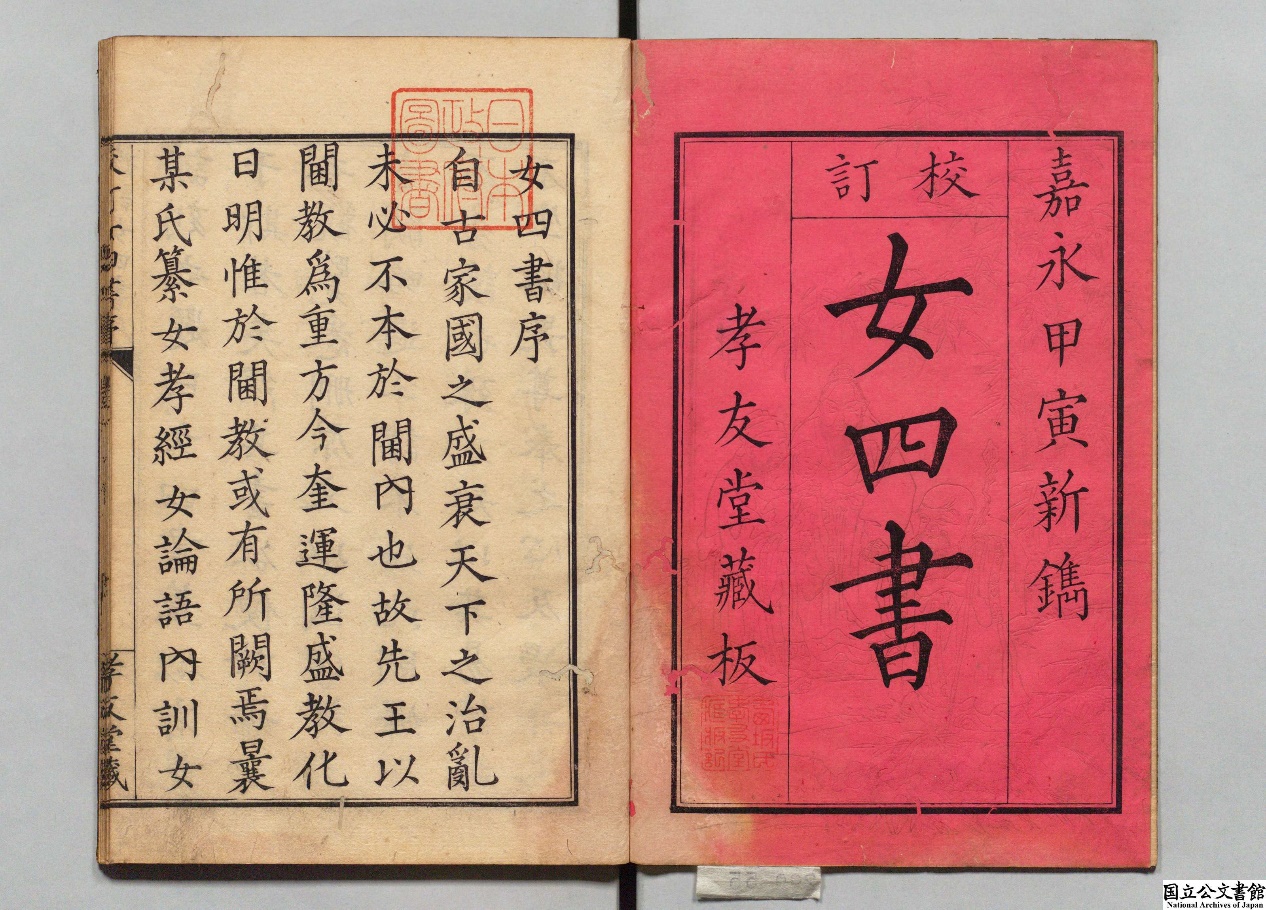 嘉永甲寅新鐫
校訂
女四書
孝友堂藏板
日本政府圖書
女四書序
自古家國之盛衰天下之治亂
未必不本於閫內也故先王以
閫教爲重方今奎運隆盛教化
日明惟於閫教或有所闕焉曩
某氏纂女孝經女論語內訓女
孝友堂藏
国立公文書館
National Archives of Japan